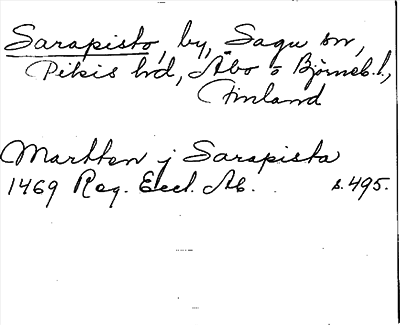 Sarapisto, by, Sagu sn,
Pikis hd, Åbo o Björneb. l.,
Finland
Martten j Sarapista
1469 Reg. Eccl. Ab. s. 495.